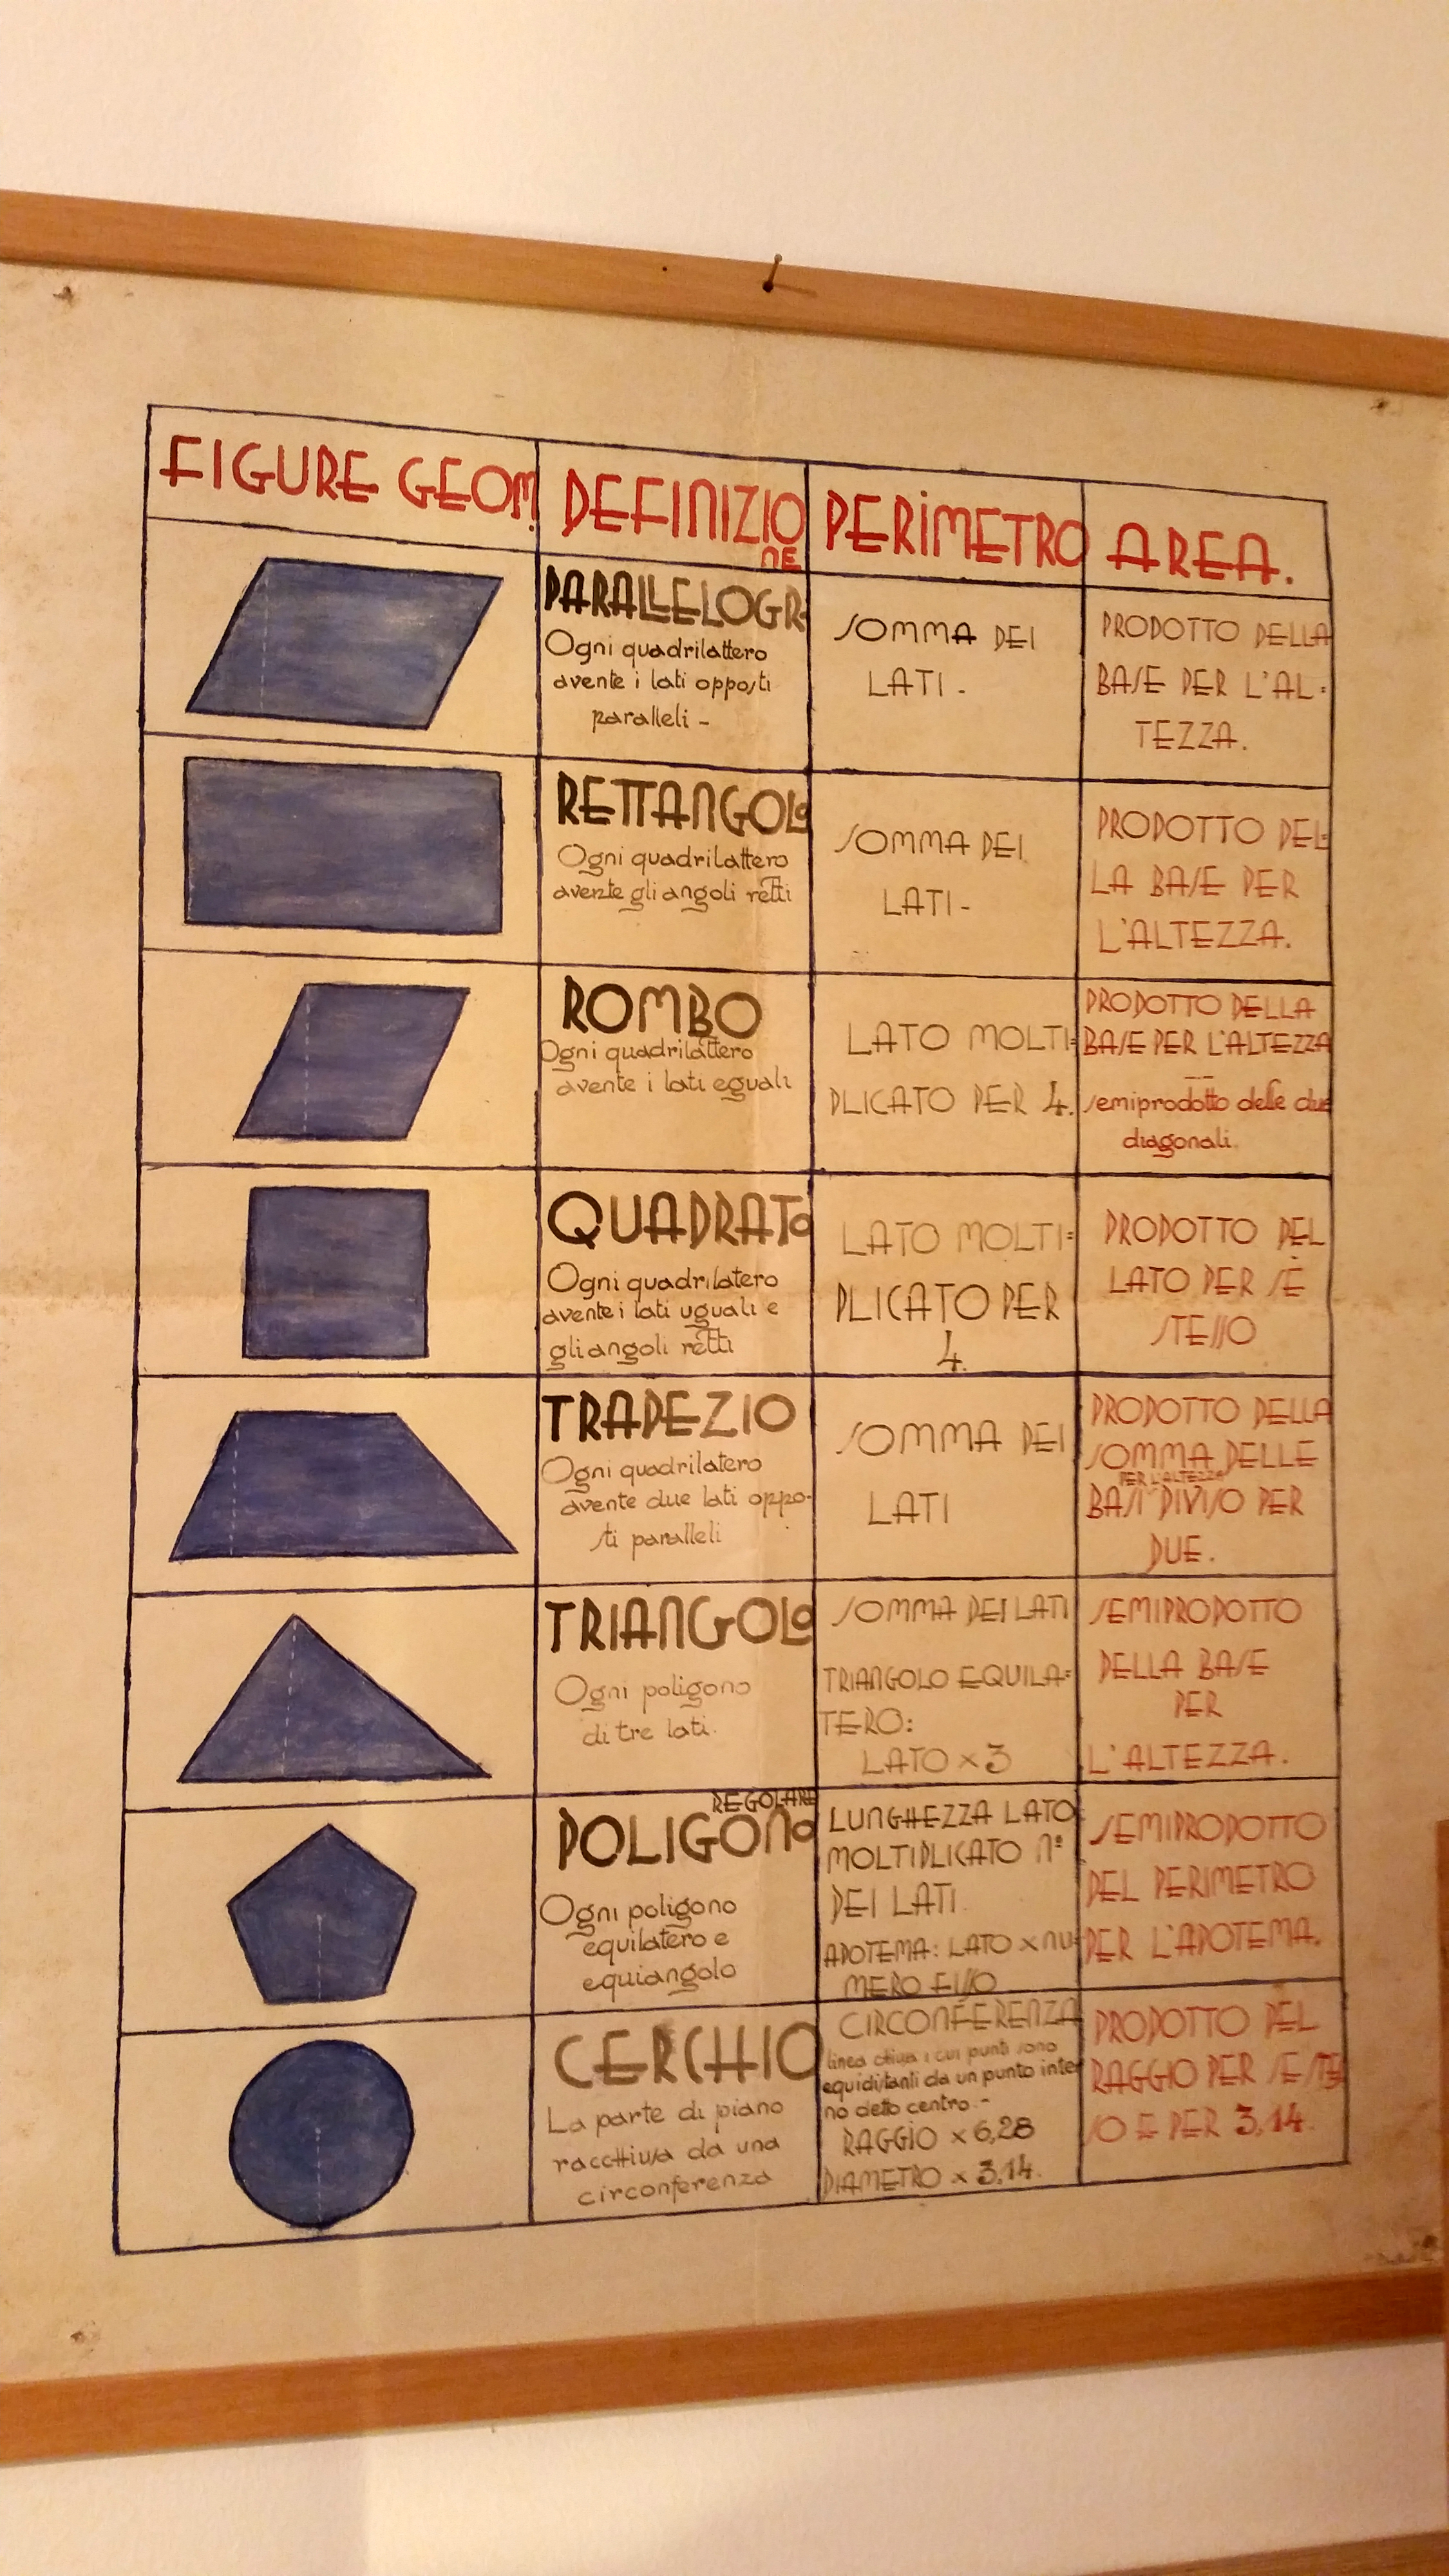 FIGURE GEOM.
DEFINIZIO
NE
PERIMETRO
AREA.
PARALLELOGR.
Ogni quadrilattero
avente i lati opposti
paralleli -
SOMMA DEI
LATI -
PRODOTTO DELLA
BASE PER L'AL=
TEZZA.
RETTANGOLO
Ogni quadrilattero
avente gli angoli retti
SOMMA DEI
LATI -
PRODOTTO DEL=
LA BASE PER
L'ALTEZZA.
ROMBO
Ogni quadrilattero
avente i lati eguali
LATO MOLTI=
PLICATO PER 4.
PRODOTTO DELLA
BASE PER L'ALTEZZA
semiprodotto delle due
diagonali.
QUADRATO
Ogni quadrilatero
avente i lati uguali e
gli angoli retti
LATO MOLTI=
PLICATO PER
4.
PRODOTTO DEL
LATO PER SÈ
STESSO
TRAPEZIO
Ogni quadrilatero
avente due lati oppo-
sti paralleli
SOMMA DEI
LATI
PRODOTTO DELLA
SOMMA DELLE
PER L'ALTEZZA
BASI DIVISO PER
DUE.
TRIANGOLO
Ogni poligono
di tre lati.
SOMMA DEI LATI
TRIANGOLO EQUILA=
TERO:
LATO × 3
SEMIPRODOTTO
DELLA BASE
PER
L'ALTEZZA.
REGOLARE
POLIGONO
Ogni poligono
equilatero e
equiangolo
LUNGHEZZA LATO
MOLTIPLICATO N°
DEI LATI.
APOTEMA: LATO × NU=
MERO FISSO
SEMIPRODOTTO
DEL PERIMETRO
PER L'APOTEMA.
CERCHIO
La parte di piano
racchiusa da una
circonferenza
CIRCONFERENZA
linea chiusa i cui punti sono
equidistanti da un punto inter
no detto centro. -
RAGGIO × 6,28
DIAMETRO × 3,14.
PRODOTTO DEL
RAGGIO PER SE STES
SO E PER 3,14.